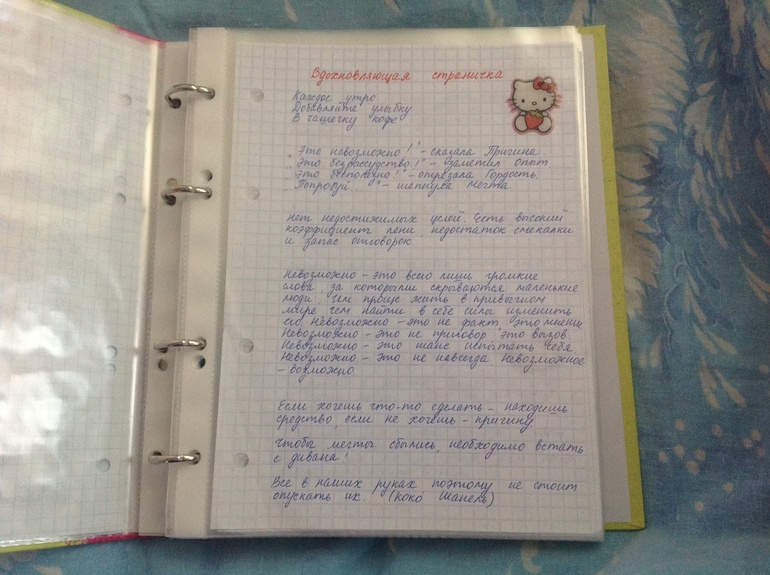 Вдохновляющая страничка
Каждое утро
Добавляйте улыбку
В чашечку кофе
„Это невозможно!" - сказала Причина.
„Это безрассудство!" - заметил опыт
„Это бесполезно!" - отрезала Гордость.
„Попробуй..." - шепнула Мечта.
Нет недостижимых целей. Есть высокий
коэффициент лени, недостаток смекалки
и запас отговорок
Невозможно - это всего лишь громкие
слова за которыми скрываются маленькие
люди. Им проще жить в привычном
мире чем найти в себе силы изменить
его. Невозможно - это не факт. Это мнение
Невозможно - это не приговор. Это вызов.
Невозможно - это шанс испытать себя.
Невозможно - это не навсегда. Невозможное
- возможно.
Если хочешь что-то сделать - находишь
средство, если не хочешь - причину
чтобы мечты сбылись, необходимо встать
с дивана!
Все в наших руках поэтому не стоит
опускать их. (Коко Шанель)